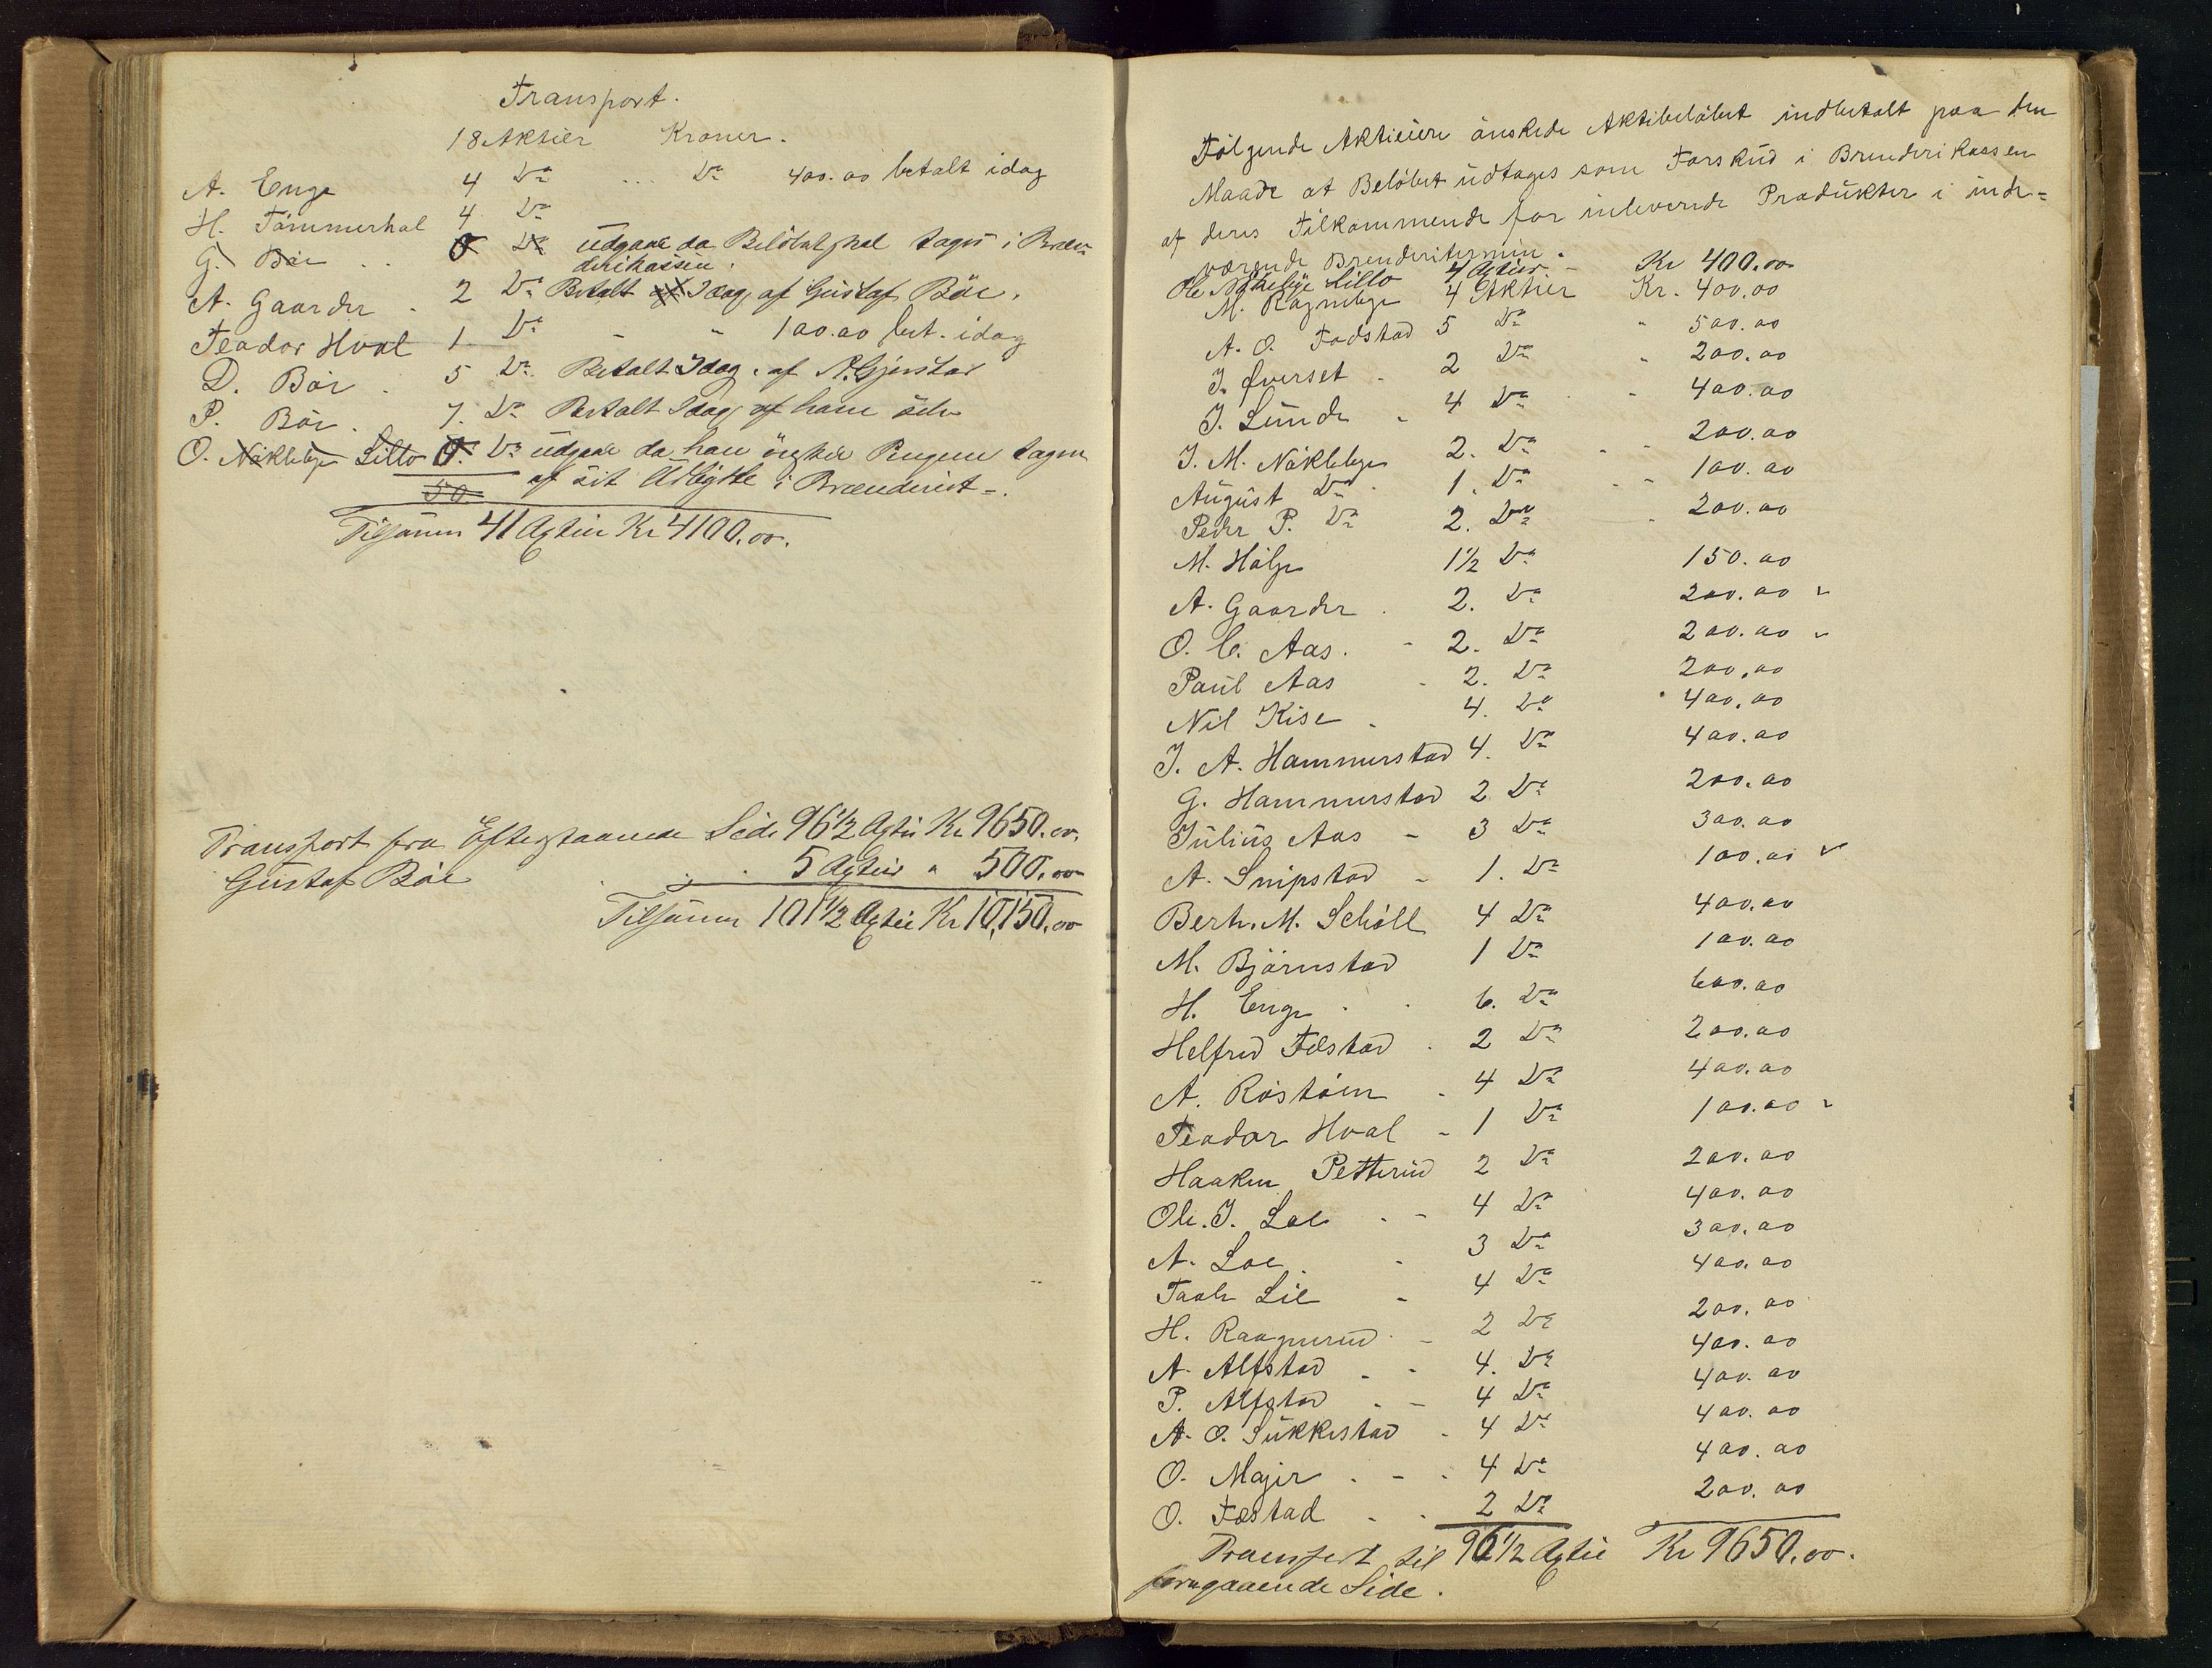 Transport.
18 Aktier Kroner.
A. Enge 4 Do ... Do 400.00 betalt idag
H. Tömmerhol 4 Do
G. Böe .. 0 Do udgaar da Belöbet skal tages i Bræn-
derikassen.
A. Gaarder . 2 Do Betalt af Idag, af Gustaf Böe.
Teodor Hval 1 Do - " 100.00 bet. idag
D. Böe . 5 Do. Betalt Idag. af N. Gjerstad
P. Böe . 7. Do Betalt Idag, af ham selv
O. Nökleby Lillo 0. Do udgaar da han önsker Pengene tagen
50 af sit Udbytte i Brænderiet -.
Tilsamm 41 Agtier Kr 4100.00.
Transport fra Efterstaaende Side 96 1/2 Agtie Kr 9650.00.
Gustaf Böe . . . 5 Agtier " 500.00
Tilsamm 101 1/2 Agtie Kr 10,150.00
Fölgende Aktieiere önskede Aktibelöbet indbetalt paa den
Maade at Belöbet udtages som Forskud i Brenderikassen
af deres Tilkommende for inleverede Produkter i inde-
værende Brenderitermin.
Ole Nökleby Lillo 4 Agtier - Kr 400.00
M. Ragneby 4 Aktier Kr. 400.00
A. O. Fodstad 5 Do " 500.00
J. Øverset - 2 Do " 200.00
J. Lunde - 4 Do . - 400.00
J. M. Nökleby 2. Do . - 200.00
August Do . 1. Do . - 100.00
Peder P. Do 2. Do . 200.00
M. Hölje 1 1/2 Do 150.00
A. Gaarder . 2. Do 200.00 ✓
O. C. Aas. - 2. Do 200.00 ✓
Paul Aas - 2. Do 200.00
Nil Kise . 4. Do 400.00
J. A. Hammerstad 4. Do 400.00
G. Hammerstad 2. Do 200.00
Julius Aas - 3 Do 300.00
A. Snipstad - 1. Do 100.00 ✓
Berh. M. Schöll 4 Do 400.00
M. Björnstad 1 Do 100.00
H. Enge . . 6. Do 600.00
Helfred Fæstad . 2 Do 200.00
A. Röstöen . 4 Do 400.00
Teodor Hval - 1 Do 100.00 ✓
Haaken Petterud 2 Do 200.00
Ole. J. Loe . - 4 Do 400.00
A. Loe. - 3 Do 300.00
Taale Lie - 4 Do 400.00
H. Raagnerud . - 2 Do 200.00
A. Alfstad . - 4. Do 400.00
P. Alfstad . - 4 Do 400.00
A. O. Sukkestad . 4 Do 400.00
O. Majer . - . 4 Do 400.00
O. Fæstad - . 2 Do 200.00
Transport til 96 1/2 Agtie Kr 9650.00.
forngaaende Side.